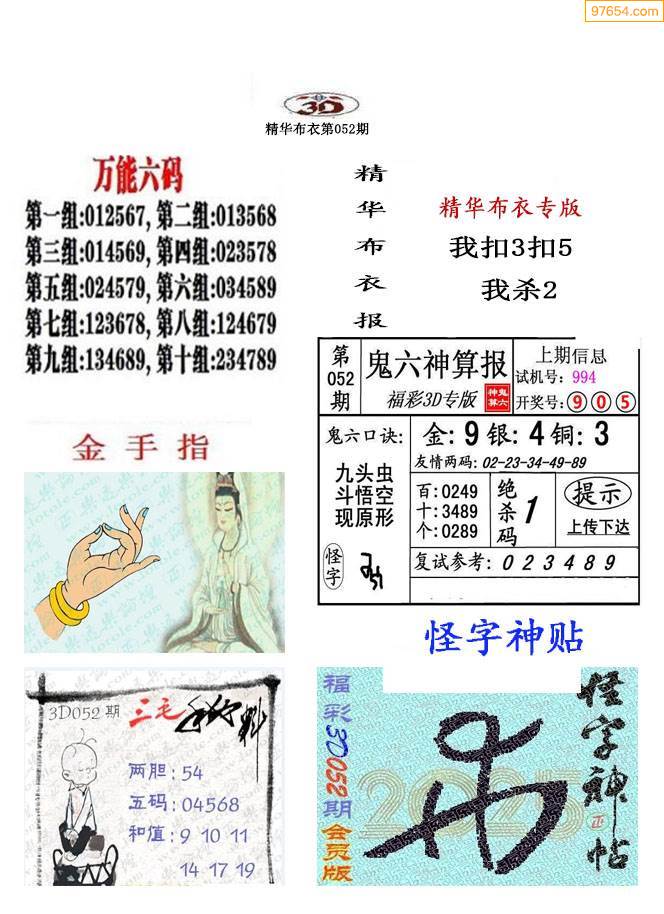 97654.com
3D
精华布衣第052期
万能六码
第一组:012567, 第二组:013568
第三组:014569, 第四组:023578
第五组:024579, 第六组:034589
第七组:123678, 第八组:124679
第九组:134689, 第十组:234789
精华布衣报
精华布衣专版
我扣3扣5
我杀2
第052期
鬼六神算报
福彩3D专版
鬼六神算
上期信息
试机号: 994
开奖号: 9 0 5
鬼六口诀:
九头虫
斗悟空
现原形
怪字
金: 9 银: 4 铜: 3
友情两码: 02-23-34-49-89
百: 0249
十: 3489
个: 0289
绝杀码
1
提示
上传下达
复试参考: 0 2 3 4 8 9
金手指
怪字神贴
3D052期
三毛
两胆: 54
五码: 04568
和值: 9 10 11
14 17 19
福彩3D052期会员版
2025
怪字神帖
正